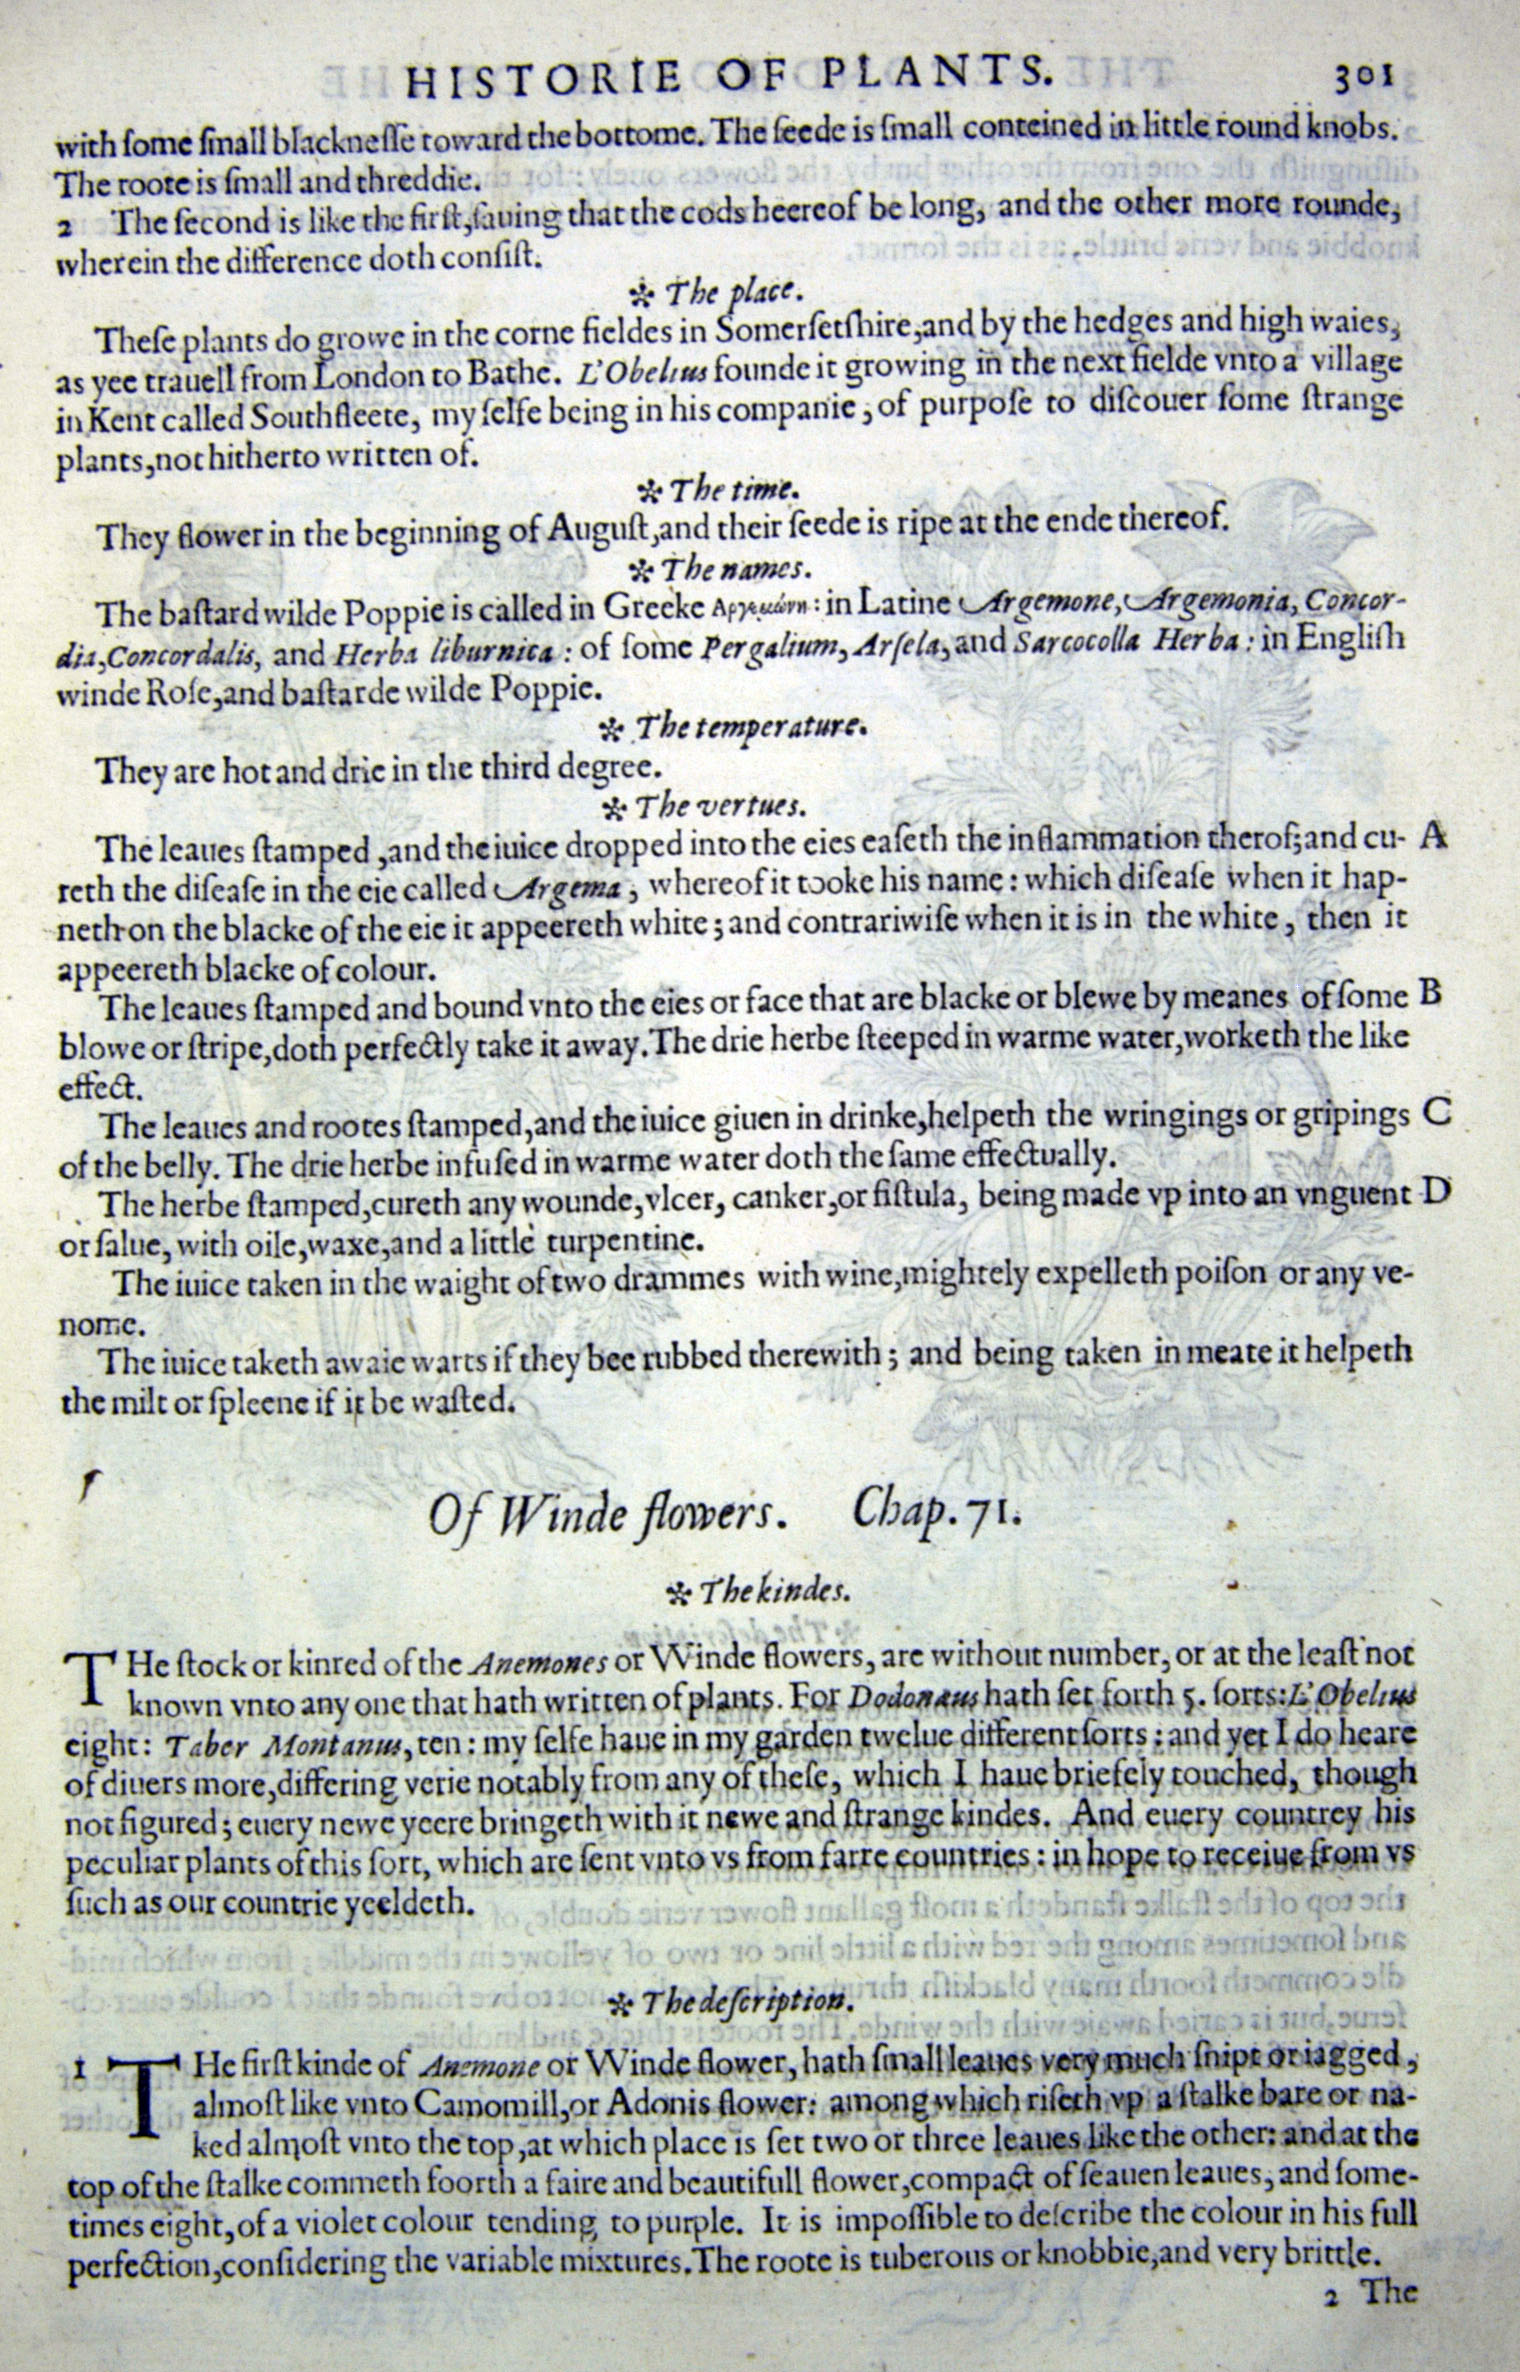 HISTORIE OF PLANTS. 301
with ſome ſmall blackneſſe toward the bottome. The ſeede is ſmall conteined in little round knobs.
The roote is ſmall and threddie.
2 The ſecond is like the firſt, ſauing that the cods heereof be long, and the other more rounde,
wherein the difference doth conſiſt.
✲ The place.
Theſe plants do growe in the corne fieldes in Somerſetſhire, and by the hedges and high waies,
as yee trauell from London to Bathe. L'Obelius founde it growing in the next fielde vnto a village
in Kent called Southfleete, my ſelfe being in his companie, of purpoſe to diſcouer ſome ſtrange
plants, not hitherto written of.
✲ The time.
They flower in the beginning of Auguſt, and their ſeede is ripe at the ende thereof.
✲ The names.
The baſtard wilde Poppie is called in Greeke Αργεμώνη: in Latine Argemone, Argemonia, Concor-
dia, Concordalis, and Herba liburnica: of ſome Pergalium, Arſela, and Sarcocolla Herba: in Engliſh
winde Roſe, and baſtarde wilde Poppie.
✲ The temperature.
They are hot and drie in the third degree.
✲ The vertues.
The leaues ſtamped, and the iuice dropped into the eies eaſeth the inflammation therof; and cu- A
reth the diſeaſe in the eie called Argema, whereof it tooke his name: which diſeaſe when it hap-
neth on the blacke of the eie it appeereth white; and contrariwiſe when it is in the white, then it
appeereth blacke of colour.
The leaues ſtamped and bound vnto the eies or face that are blacke or blewe by meanes of ſome B
blowe or ſtripe, doth perfectly take it away. The drie herbe ſteeped in warme water, worketh the like
effect.
The leaues and rootes ſtamped, and the iuice giuen in drinke, helpeth the wringings or gripings C
of the belly. The drie herbe infuſed in warme water doth the ſame effectually.
The herbe ſtamped, cureth any wounde, vlcer, canker, or fiſtula, being made vp into an vnguent D
or ſalue, with oile, waxe, and a little turpentine.
The iuice taken in the waight of two drammes with wine, mightely expelleth poiſon or any ve-
nome.
The iuice taketh awaie warts if they bee rubbed therewith; and being taken in meate it helpeth
the milt or ſpleene if it be waſted.
Of Winde flowers. Chap. 71.
✲ The kindes.
THe ſtock or kinred of the Anemones or Winde flowers, are without number, or at the leaſt not
known vnto any one that hath written of plants. For Dodonæus hath ſet forth 5. ſorts: L'Obelius
eight: Taber Montanus, ten: my ſelfe haue in my garden twelue different ſorts: and yet I do heare
of diuers more, differing verie notably from any of theſe, which I haue briefely touched, though
not figured; euery newe yeere bringeth with it newe and ſtrange kindes. And euery countrey his
peculiar plants of this ſort, which are ſent vnto vs from farre countries: in hope to receiue from vs
ſuch as our countrie yeeldeth.
✲ The deſcription.
1 THe firſt kinde of Anemone or Winde flower, hath ſmall leaues very much ſnipt or iagged,
almoſt like vnto Camomill, or Adonis flower: among which riſeth vp a ſtalke bare or na-
ked almoſt vnto the top, at which place is ſet two or three leaues like the other: and at the
top of the ſtalke commeth foorth a faire and beautifull flower, compact of ſeauen leaues, and ſome-
times eight, of a violet colour tending to purple. It is impoſſible to deſcribe the colour in his full
perfection, conſidering the variable mixtures. The roote is tuberous or knobbie, and very brittle.
2 The